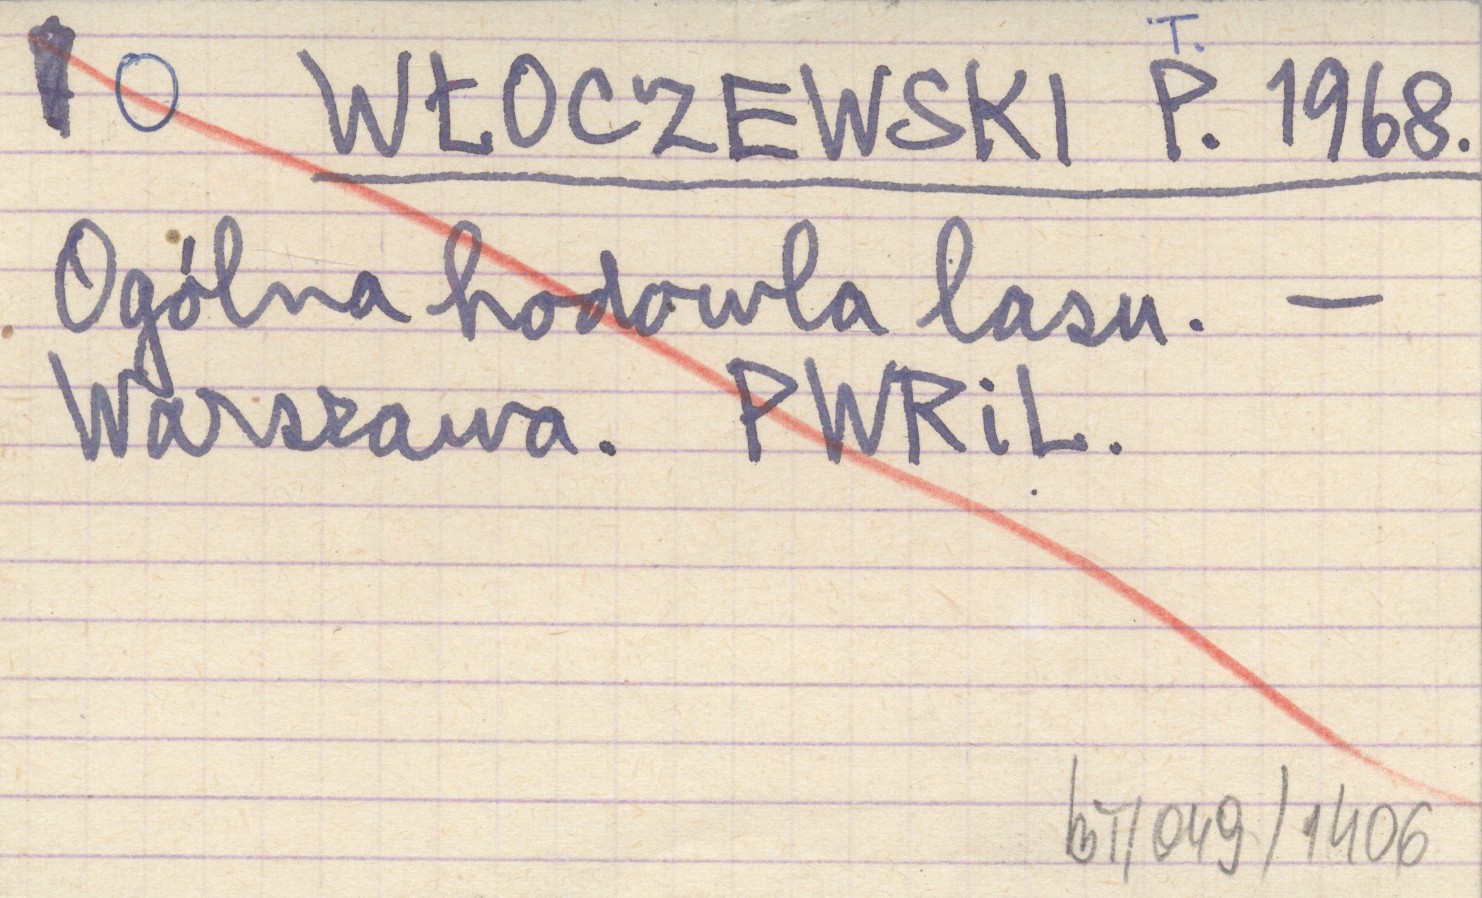 O WŁOCZEWSKI P. 1968.
T.
Ogólna hodowla lasu. —
Warszawa. PWRiL.
/049/1406